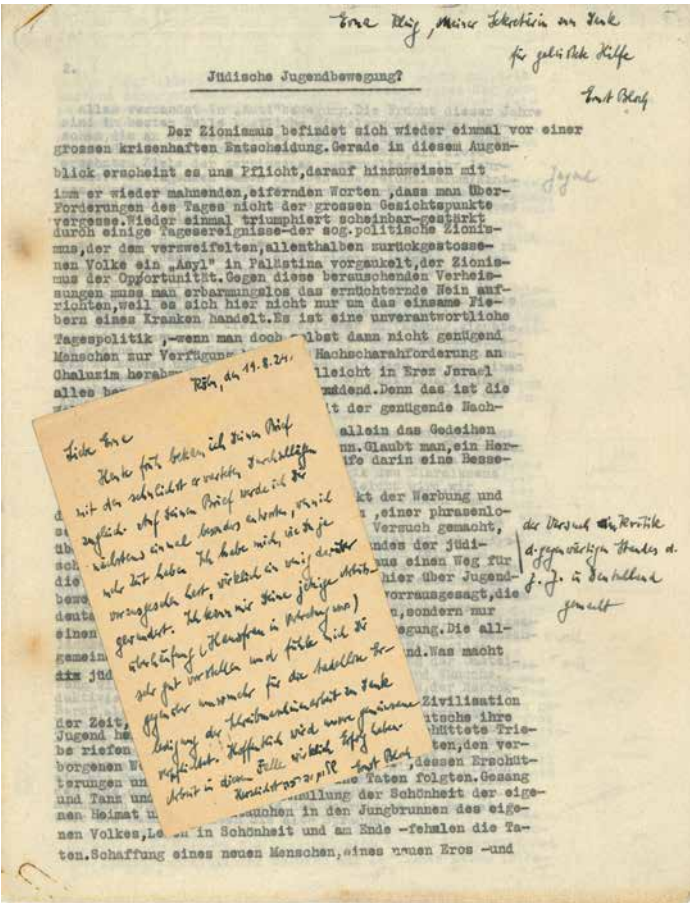 Erna Klug, meiner Sekretärin zum Dank
für geleistete Hilfe
Ernst Bloch
2.
Jüdische Jugendbewegung?
Der Zionismus befindet sich wieder einmal vor einer
grossen krisenhaften Entscheidung.Gerade in diesem Augen-
blick erscheint es uns Pflicht,darauf hinzuweisen mit
imm er wieder mahnenden,eifernden Worten ,dass man über-
Forderungen des Tages nicht der grossen Gesichtspunkte
vergesse.Wieder einmal triumphiert scheinbar-gestärkt
durch einige Tagesereignisse-der sog.politische Zionis-
mus,der dem verzweifelten,allenthalben zurückgestosse-
nen Volke ein „Asyl" in Palästina vorgaukelt,der Zionis-
mus der Opportunität.Gegen diese berauschenden Verheis-
sungen muss man erbarmungslos das ernüchternde Nein auf-
richten,weil es sich hier nicht nur um das einsame Fie-
bern eines Kranken handelt.Es ist eine unverantwortliche
Tagespolitik ,-wenn man doch selbst dann nicht genügend
Menschen zur Verfügung Hachscharahforderung an
Chaluzim lleicht in Erez Jsrael
alles
Denn das ist die
t der genügende Nach-
allein das Gedeihen
nn.Glaubt man,ein Her-
fe darin eine Besse-
kt der Werbung und
,einer phrasenlo-
Versuch gemacht,
ndes der jüdi-
us einen Weg für
die hier über Jugend-
bewe vorrausgesagt,die
deuts n,sondern nur
einen egung.Die all-
gemein nd.Was macht
jüd
Zivilisation
der Zeit, utsche ihre
Jugend he hüttete Trie-
be riefen ten,den ver-
borgenen W ,dessen Erschüt-
terungen un Taten folgten.Gesang
und Tanz und llung der Schönheit der eige-
nen Heimat u auchen in den Jungbrunnen des eige-
nen Volkes,Le in Schönheit und am Ende -fehmlen die Ta-
ten.Schaffung eines neuen Menschen,eines neuen Eros -und
Jugend
der Versuch Kritik
d.gegenwärtigen Standes d.
J. J. in Deutschland
gemacht
Köln, den 19.8.24.
Liebe Erna
Heute früh bekam ich Deinen Brief
mit den sehnlichst erwarteten Durchschlägen
zugleich. Auf Deinen Brief werde ich Dir
nächstens einmal besonders antworten, wenn ich
mehr Zeit habe. Ich habe mich, wie Du ja
vorausgesehen hast, wirklich ein wenig darüber
gewundert. Ich kann mir Deine jetzige Arbeits-
überhäufung (Hausfrau in Vertretung usw.)
sehr gut vorstellen und fühle mich Dir
gegenüber umsomehr für die tadellose Er-
ledigung der Schreibmaschinenarbeit zu Dank
verpflichtet. Hoffentlich wird unsere gemeinsame
Arbeit in diesem Falle wirklich Erfolg haben.
Ernst Bloch